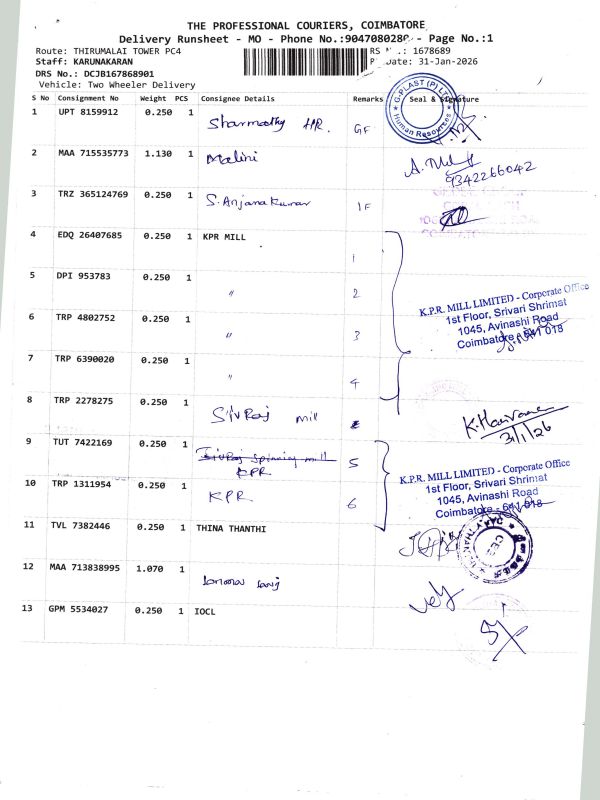 THE PROFESSIONAL COURIERS, COIMBATORE
Delivery Runsheet - MO - Phone No.:904708028 - Page No.:1
Route: THIRUMALAI TOWER PC4
RS No.: 1678689
Staff: KARUNAKARAN
Date: 31-Jan-2026
DRS No.: DCJB167868901
Vehicle: Two Wheeler Delivery
S No Consignment No Weight PCS Consignee Details Remarks Seal & Signature
1 UPT 8159912 0.250 1 HR. GF
G-PLAST (P) LTD
Human Resources
2 MAA 715535773 1.130 1 Malini
9342266042
3 TRZ 365124769 0.250 1 S. Anjanakumar 1F
4 EDQ 26407685 0.250 1 KPR MILL 1
5 DPI 953783 0.250 1 " 2
6 TRP 4802752 0.250 1 " 3
K.P.R. MILL LIMITED - Corporate Office
1st Floor, Srivari Shrimat
1045, Avinashi Road
Coimbatore - 641 018
7 TRP 6390020 0.250 1 " 4
8 TRP 2278275 0.250 1 mill
31/1/26
9 TUT 7422169 0.250 1 spinning mill 5
KPR
10 TRP 1311954 0.250 1 KPR 6
K.P.R. MILL LIMITED - Corporate Office
1st Floor, Srivari Shrimat
1045, Avinashi Road
Coimbatore - 641 018
11 TVL 7382446 0.250 1 THINA THANTHI
12 MAA 713838995 1.070 1
13 GPM 5534027 0.250 1 IOCL